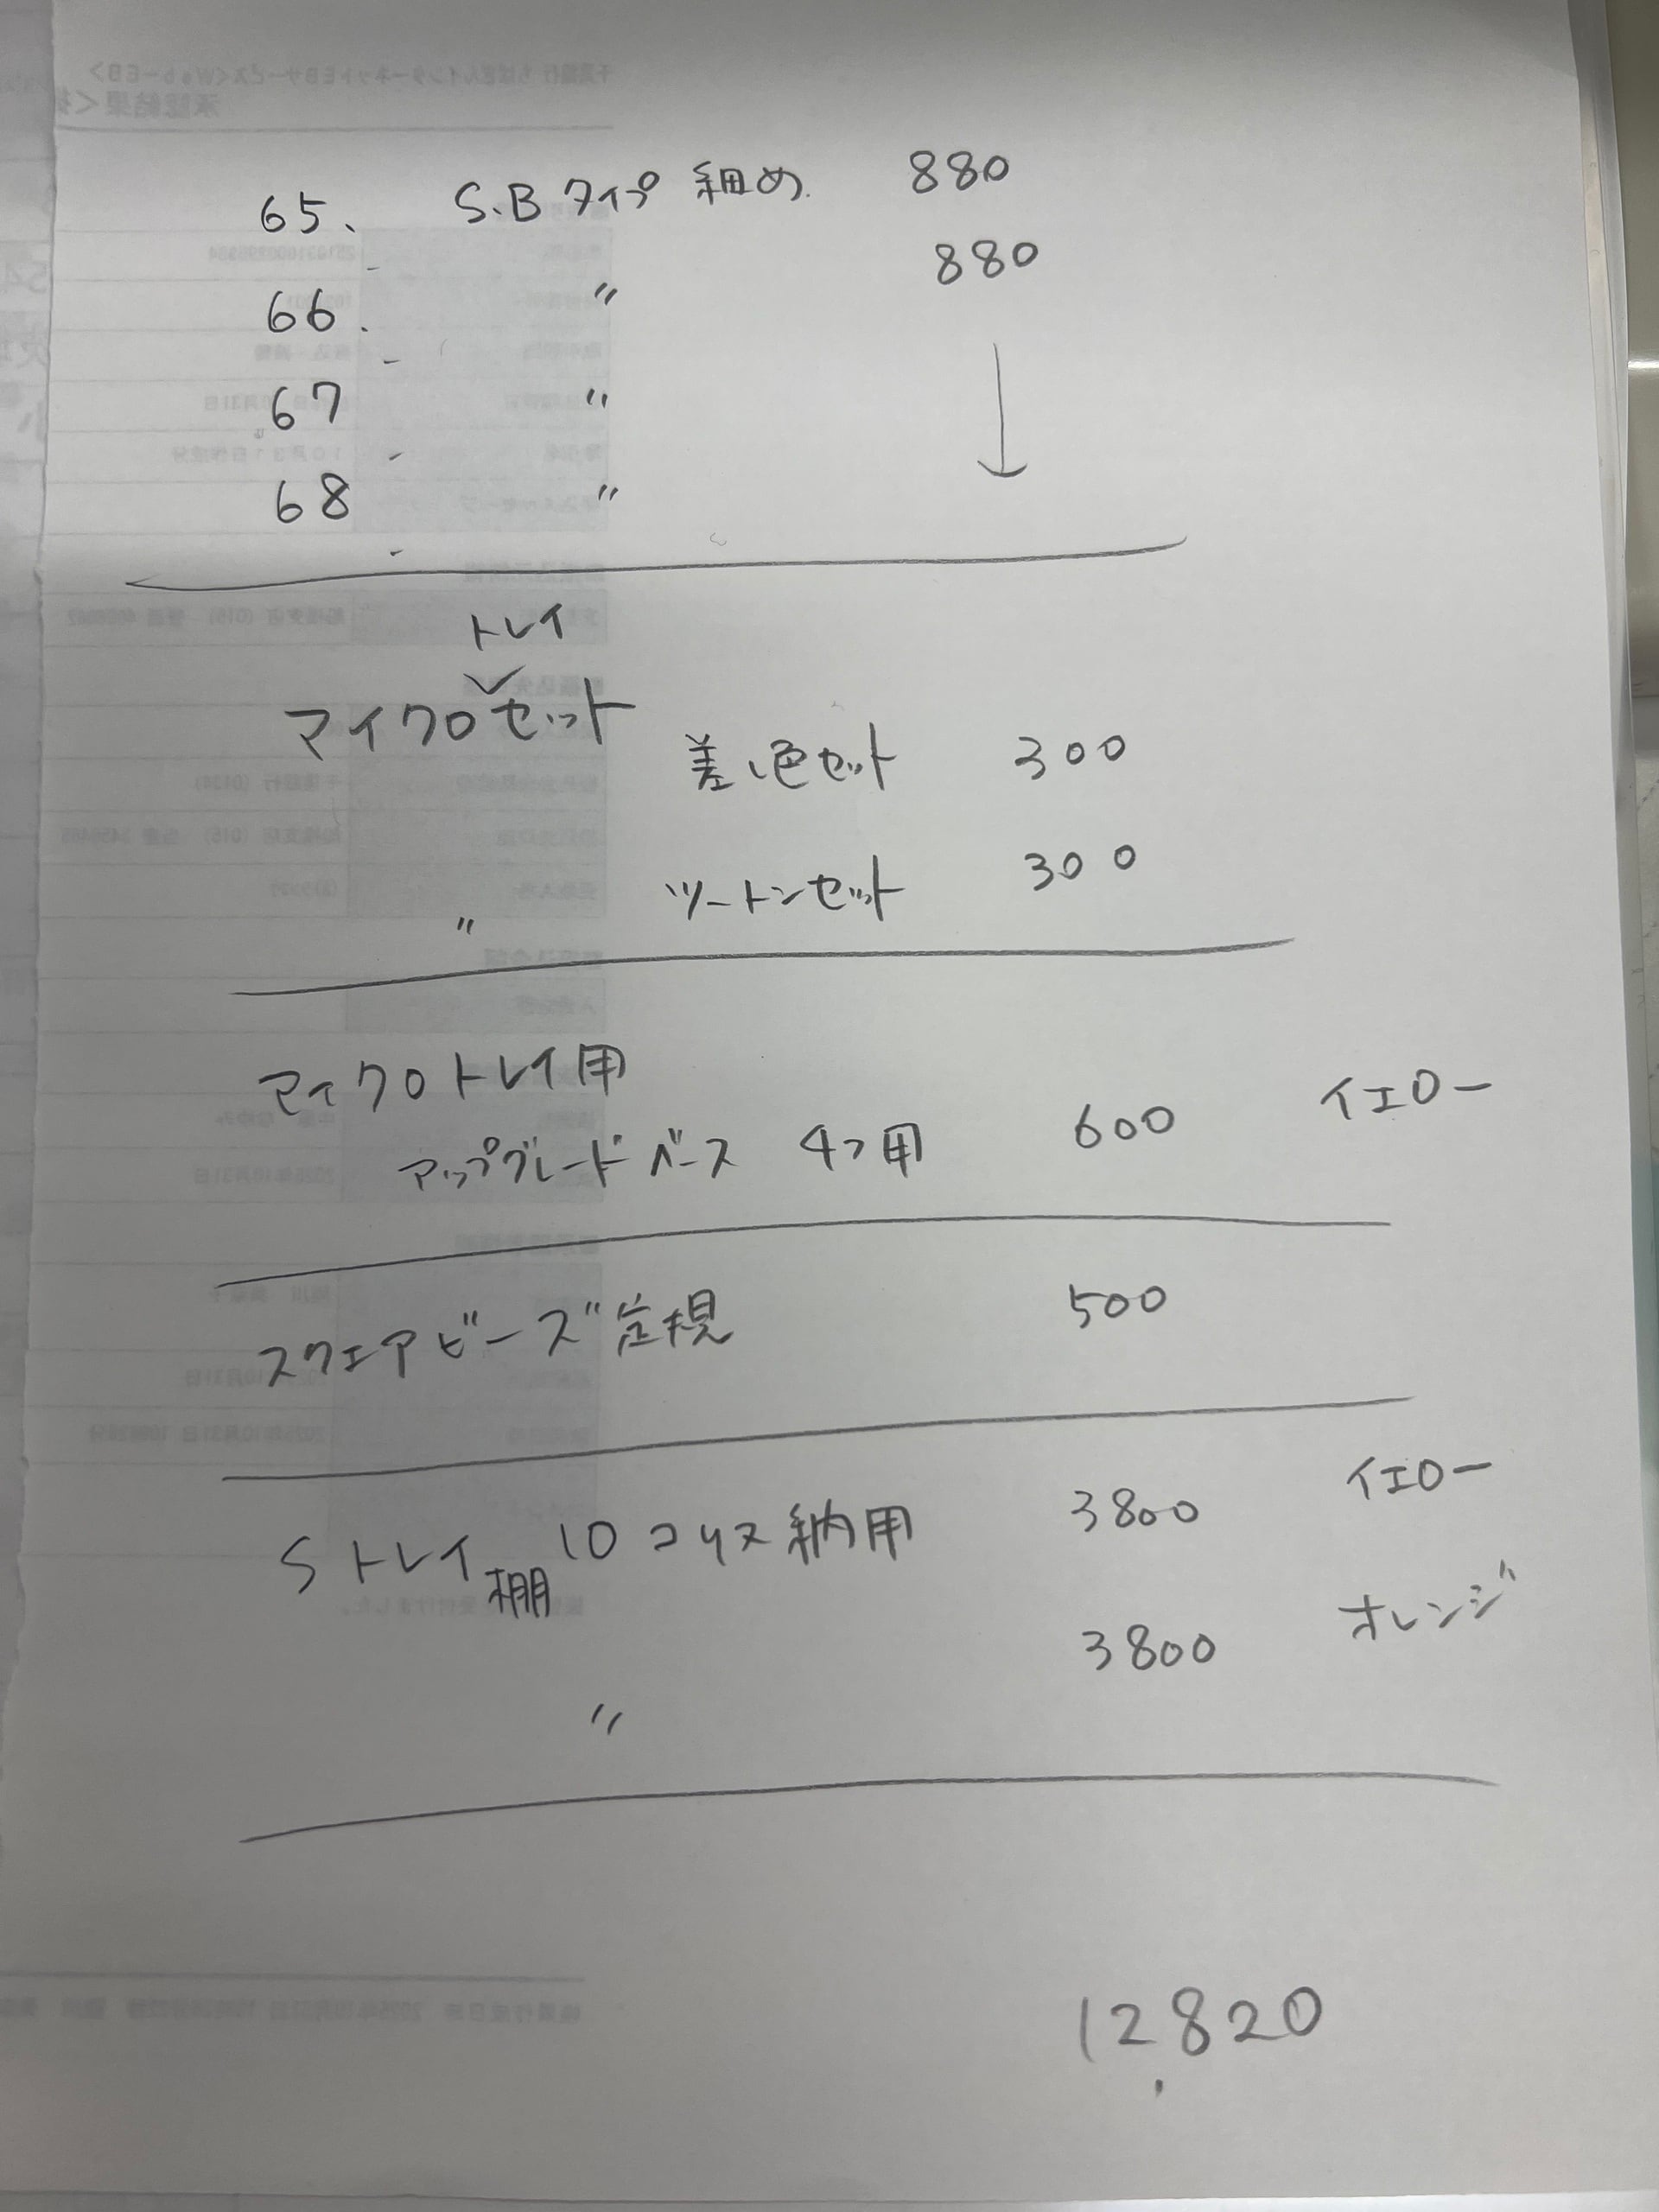 65、 S.Bタイプ 細め 880
66. 〃 880
67 〃
68 〃
トレイ
マイクロセット 差し色セット 300
〃 ツートンセット 300
マイクロトレイ用
アップグレードベース 4つ用 600 イエロー
スクエアビーズ定規 500
Sトレイ棚 10コ収納用 3800 イエロー
〃 3800 オレンジ
12,820